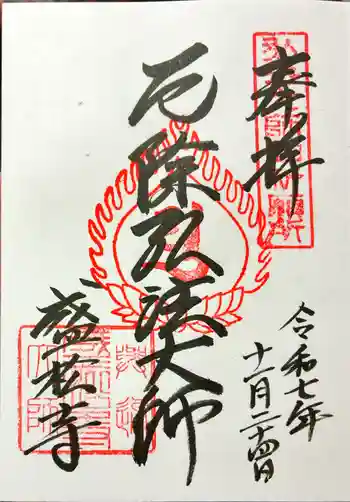 奉拝
令和七年
十一月二十四日
厄除弘法大師
盛松寺